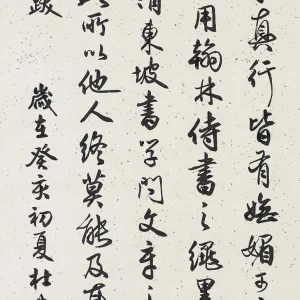 真行皆有嫵媚可
用翰林侍書之繩墨
謂東坡書学問文章之
此所以他人終莫能及爾
跋 歲在癸亥初夏杜